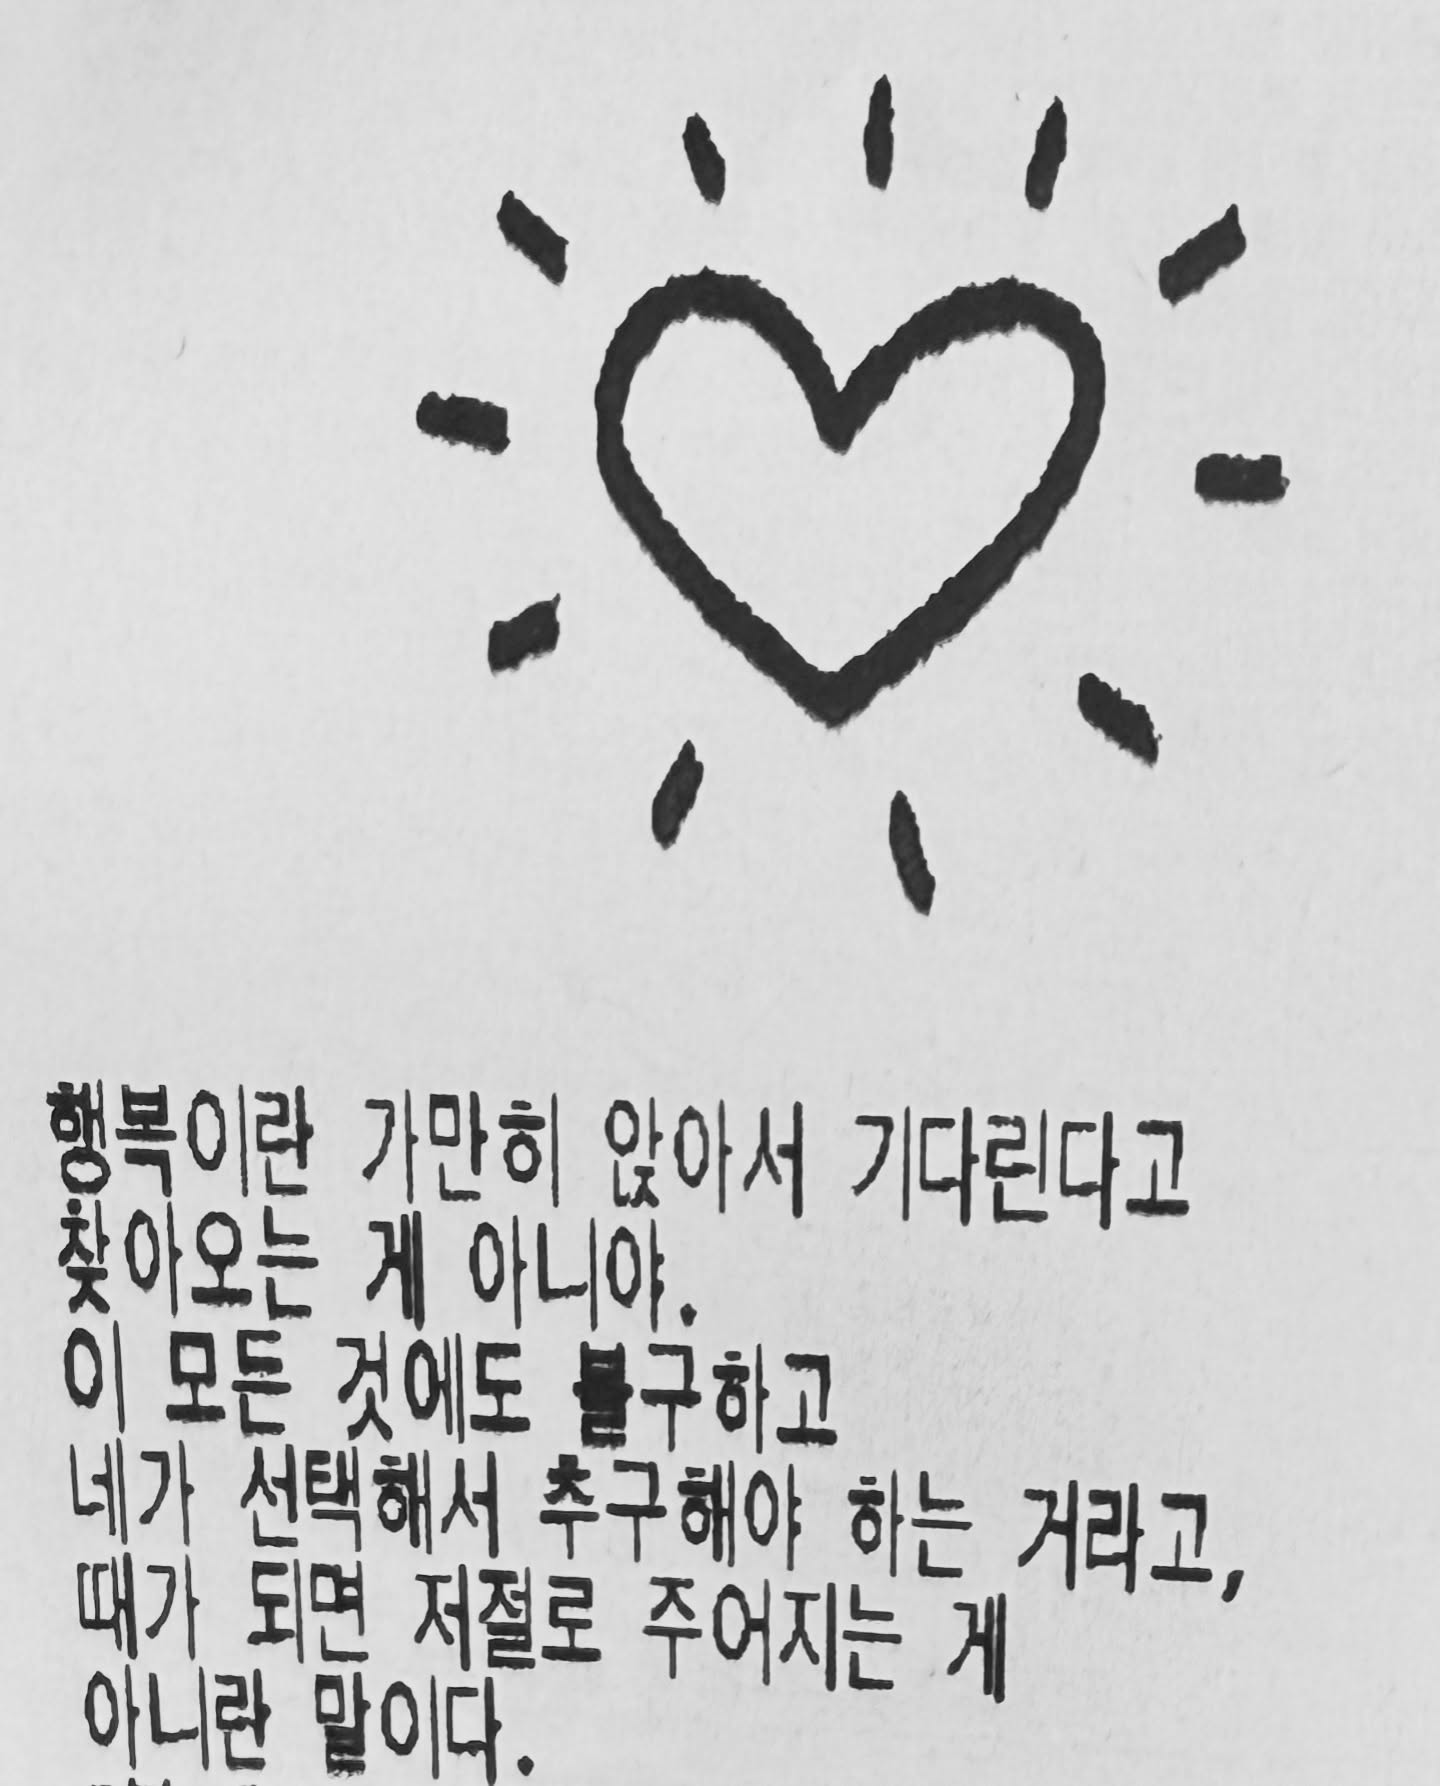 행복이란 가만히 앉아서 기다린다고
찾아오는 게 아니야.
이 모든 것에도 불구하고
네가 선택해서 추구해야 하는 거라고,
때가 되면 저절로 주어지는 게
아니란 말이다.